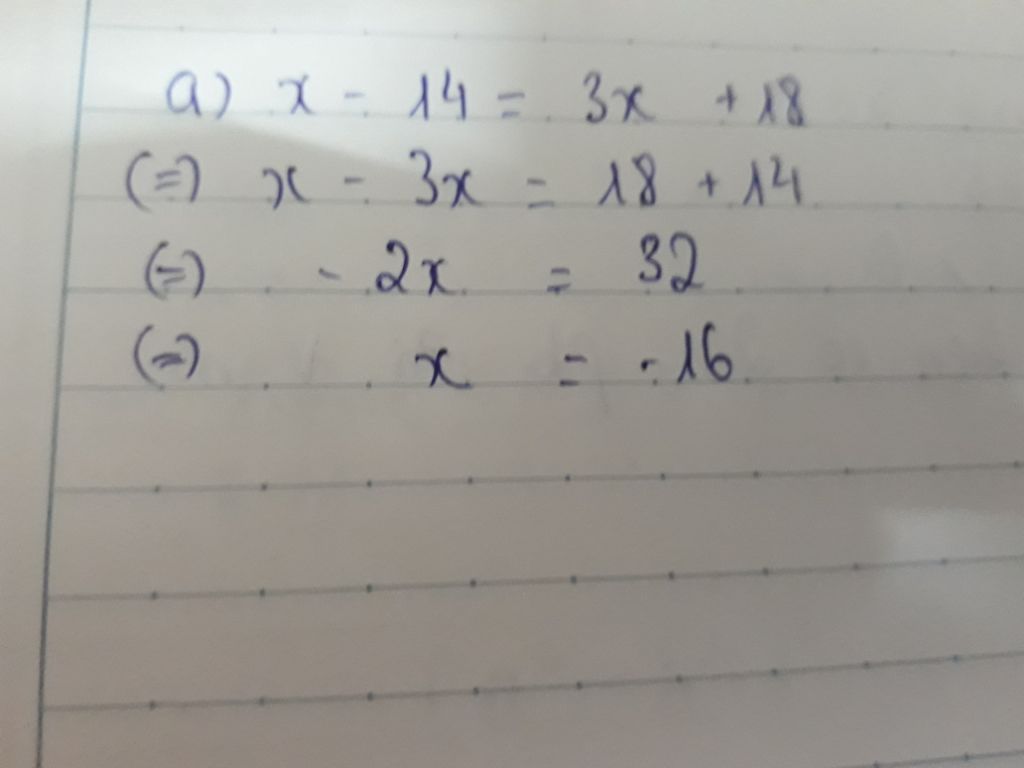 a) x - 14 = 3x + 18
(=) x - 3x = 18 + 14
(=) - 2x = 32
(=) x = -16